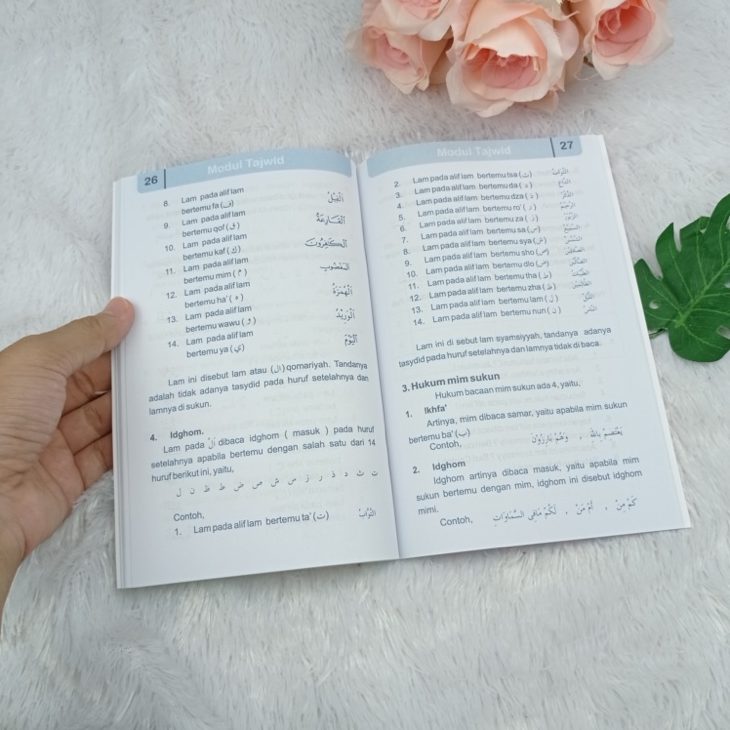 26
Modul Tajwid
8. Lam pada alif lam
bertemu fa (ف)
الْفِيْلُ
9. Lam pada alif lam
bertemu qof (ق)
الْقَارِعَةُ
10. Lam pada alif lam
bertemu kaf (ك)
الْكَافِرُونَ
11. Lam pada alif lam
bertemu mim (م)
12. Lam pada alif lam
bertemu ha' (ه)
الْهُمَزَةُ
13. Lam pada alif lam
bertemu wawu (و)
14. Lam pada alif lam
bertemu ya (ي)
الْيَوْمَ
Lam ini disebut lam atau (ال) qomariyah. Tandanya
adalah tidak adanya tasydid pada huruf setelahnya dan
lamnya di sukun.
4. Idghom.
Lam pada ال dibaca idghom ( masuk ) pada huruf
setelahnya apabila bertemu dengan salah satu dari 14
huruf berikut ini, yaitu,
ت ث د ذ ر ز س ش ص ض ط ظ ن ل
Contoh,
1. Lam pada alif lam bertemu ta' (ت)
التَّوَّابُ
Modul Tajwid
27
2. Lam pada alif lam bertemu tsa (ث)
3. Lam pada alif lam bertemu da (د)
4. Lam pada alif lam bertemu dza (ذ)
5. Lam pada alif lam bertemu ro' (ر)
6. Lam pada alif lam bertemu za (ز)
7. Lam pada alif lam bertemu sa (س)
8. Lam pada alif lam bertemu sya (ش)
9. Lam pada alif lam bertemu sho (ص)
10. Lam pada alif lam bertemu dlo (ض)
11. Lam pada alif lam bertemu tha (ط)
12. Lam pada alif lam bertemu zha (ظ)
13. Lam pada alif lam bertemu lam (ل)
14. Lam pada alif lam bertemu nun (ن)
Lam ini di sebut lam syamsiyyah, tandanya adanya
tasydid pada huruf setelahnya dan lamnya tidak di baca.
3. Hukum mim sukun
Hukum bacaan mim sukun ada 4, yaitu,
1. Ikhfa'
Artinya, mim dibaca samar, yaitu apabila mim sukun
bertemu ba' (ب)
Contoh, يَعْتَصِمْ بِاللهِ ، وَهُمْ بَارِزُوْنَ
2. Idghom
Idghom artinya dibaca masuk, yaitu apabila mim
sukun bertemu dengan mim, idghom ini disebut idghom
mimi.
Contoh, كَمْ مِنْ ، أَمْ مَنْ ، لَكُمْ مَافِى السَّمَاوَاتِ